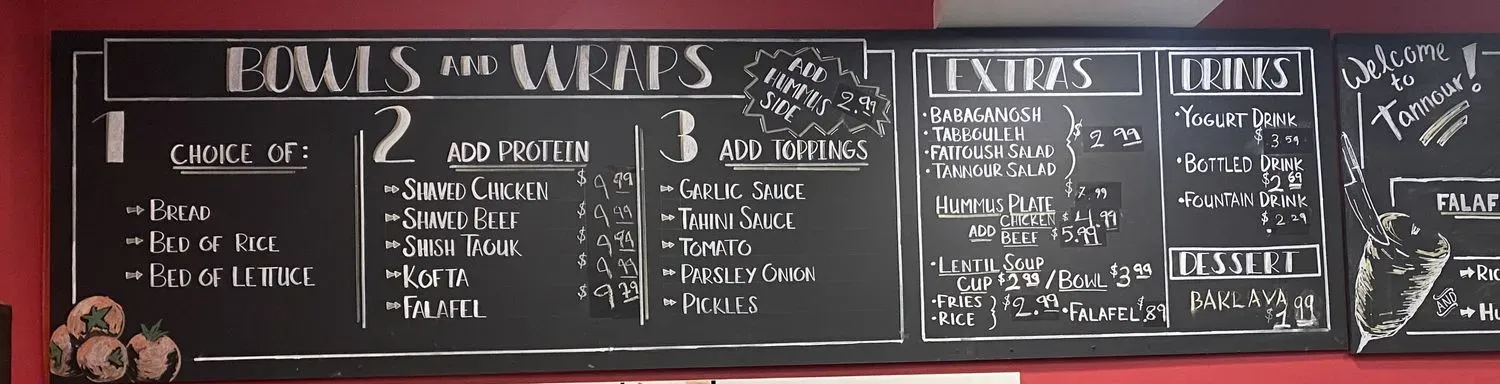 BOWLS AND WRAPS
ADD
HUMMUS
SIDE 2.99
1
CHOICE OF:
BREAD
BED OF RICE
BED OF LETTUCE
2
ADD PROTEIN
SHAVED CHICKEN $9.99
SHAVED BEEF $9.99
SHISH TAOUK $9.99
KOFTA $9.99
FALAFEL $9.79
3
ADD TOPPINGS
GARLIC SAUCE
TAHINI SAUCE
TOMATO
PARSLEY ONION
PICKLES
EXTRAS
• BABAGANOSH
• TABBOULEH
• FATTOUSH SALAD
• TANNOUR SALAD
$2.99
HUMMUS PLATE $7.99
ADD
CHICKEN $4.99
BEEF $5.99
• LENTIL SOUP
CUP $2.99 / BOWL $3.99
• FRIES
• RICE
$2.99
• FALAFEL $.89
DRINKS
• YOGURT DRINK
$3.59
• BOTTLED DRINK
$2.69
• FOUNTAIN DRINK
$2.29
DESSERT
BAKLAVA
$1.99
Welcome
to
Tannour!
FALAF
RIC
AND
HU